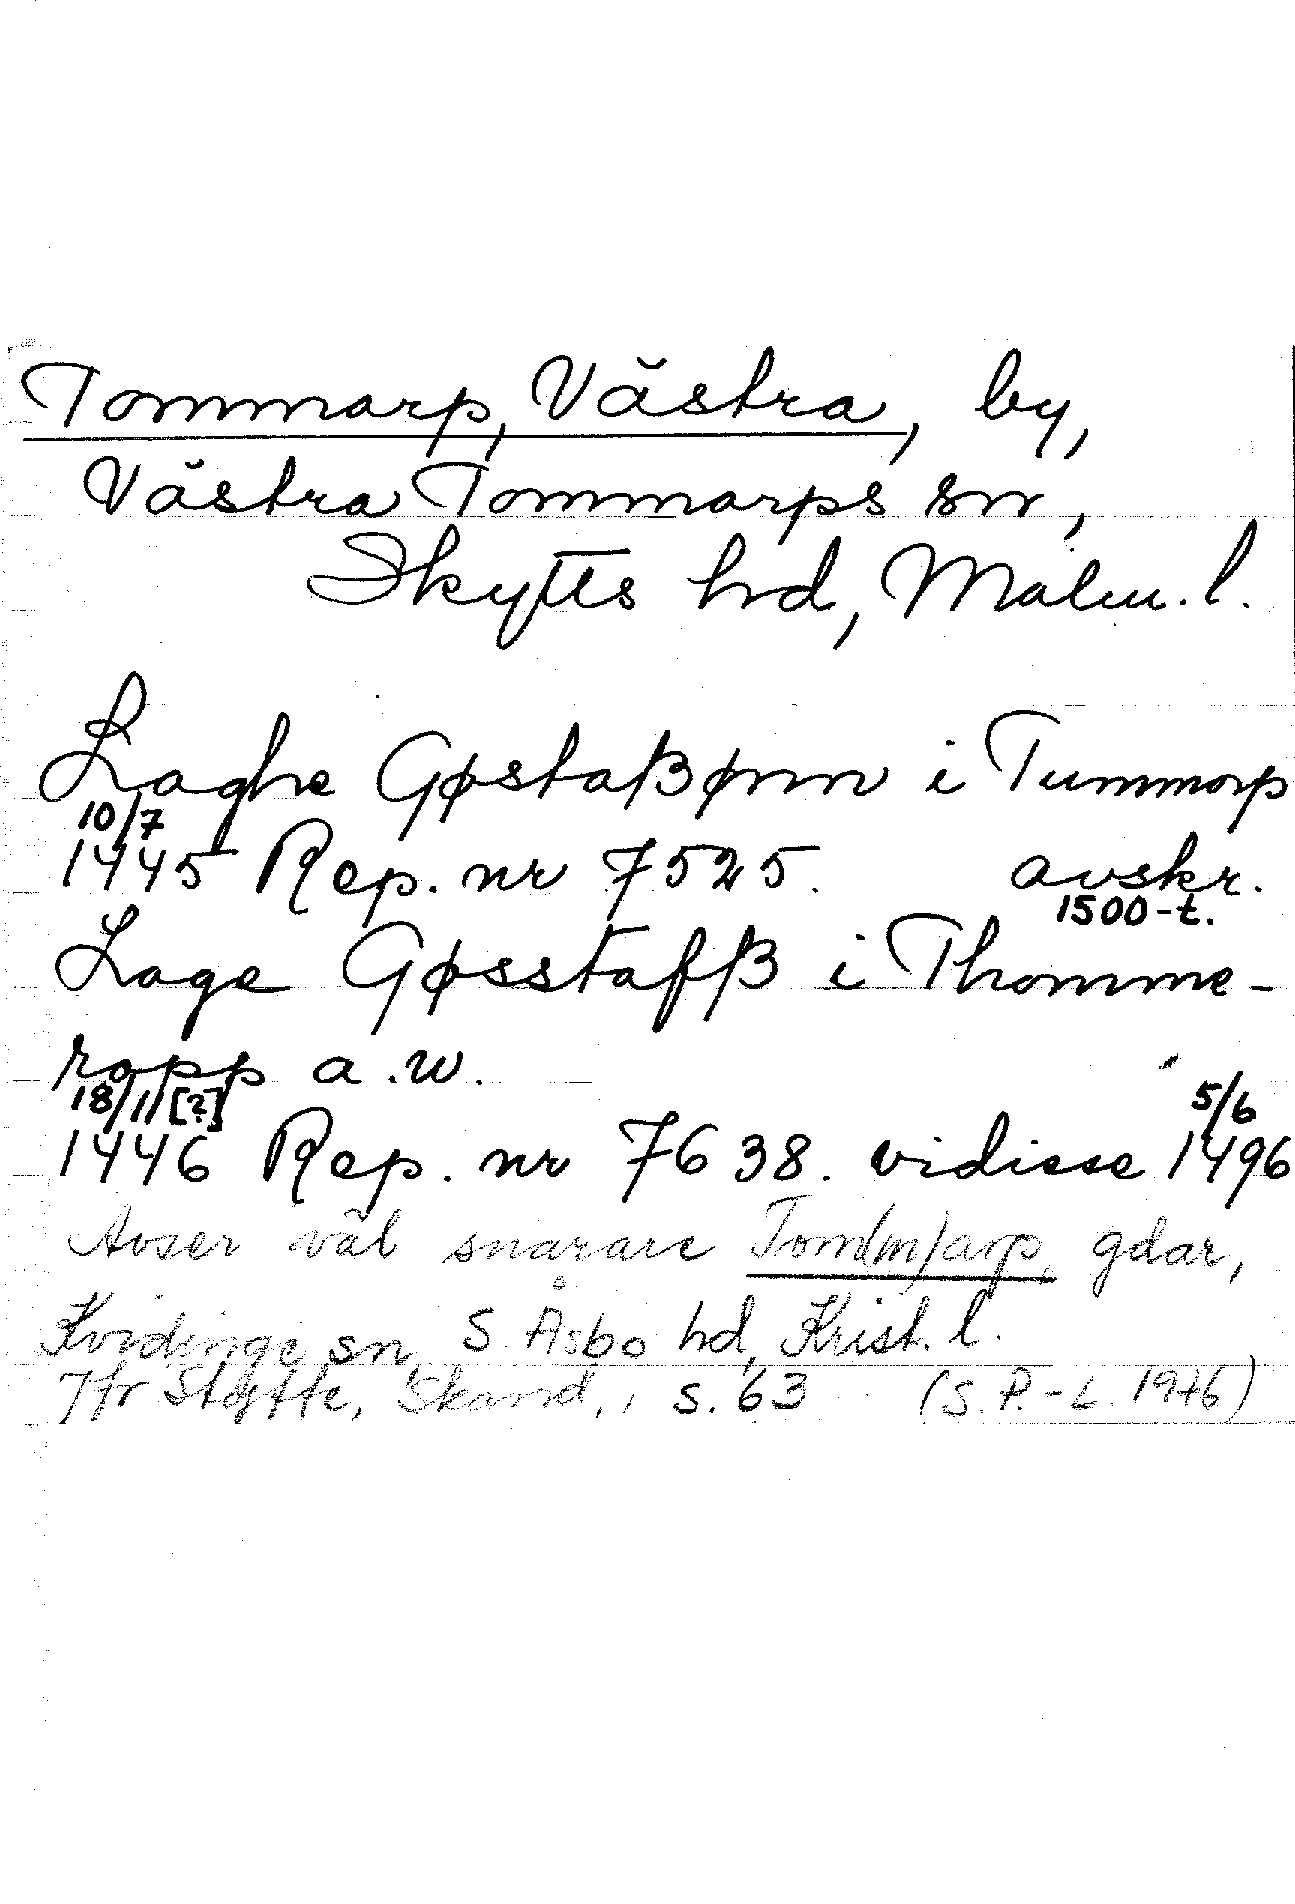 Tommarp, Västra, by,
Västra Tommarps sn,
Skytts hd, Malm. l.
Laghe Gøstaßønn i Tummorp
10/7
1445 Rep. nr 7525. avskr.
1500-t.
Lage Gøsstafß i Thomme-
ropp a.w.
18/11[?] 5/6
1446 Rep. nr 7638. vidisse 1496
Avser väl snarare Tom(m)arp, gdar,
Kvidinge sn, S Åsbo hd, Krist. l.
Jfr Styffe, Skand., s. 63 (S. P.-L. 1976)